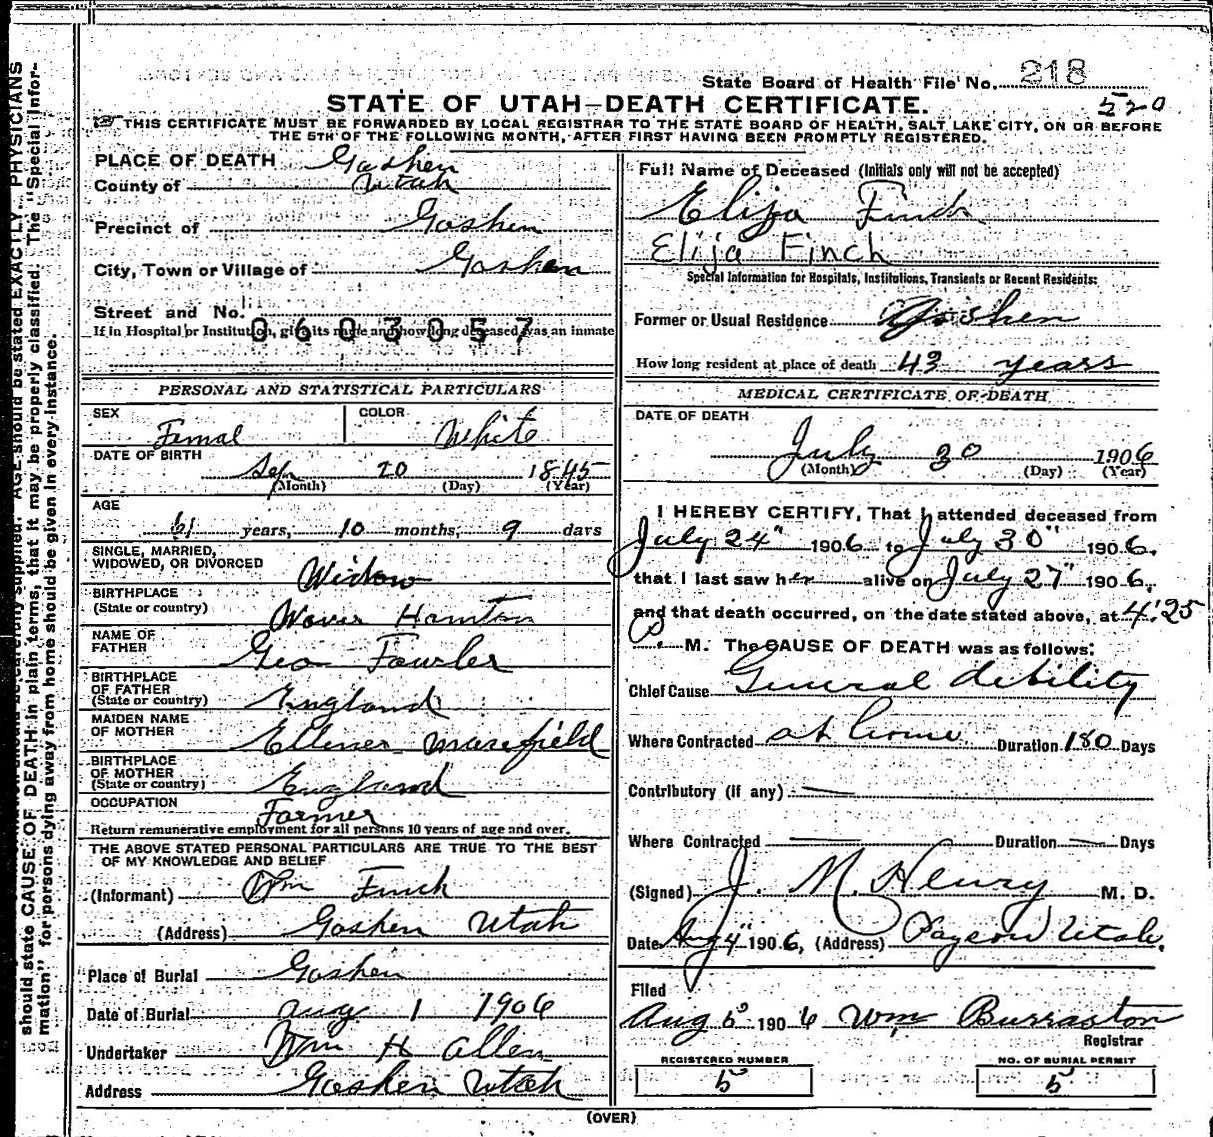 State Board of Health File No. 218
520
STATE OF UTAH—DEATH CERTIFICATE.
THIS CERTIFICATE MUST BE FORWARDED BY LOCAL REGISTRAR TO THE STATE BOARD OF HEALTH, SALT LAKE CITY, ON OR BEFORE
THE 5TH OF THE FOLLOWING MONTH, AFTER FIRST HAVING BEEN PROMPTLY REGISTERED.
PLACE OF DEATH Goshen
County of Utah
Precinct of Goshen
City, Town or Village of Goshen
Street and No.
If in Hospital or Institution, give its name and how long deceased was an inmate
0603057
PERSONAL AND STATISTICAL PARTICULARS
SEX Femal COLOR White
DATE OF BIRTH
Sep 20 1845
(Month) (Day) (Year)
AGE
61 years, 10 months, 9 days
SINGLE, MARRIED,
WIDOWED, OR DIVORCED Widow
BIRTHPLACE
(State or country) Hamton
NAME OF
FATHER Geo Fowler
BIRTHPLACE
OF FATHER
(State or country) England
MAIDEN NAME
OF MOTHER Ellener Masefield
BIRTHPLACE
OF MOTHER
(State or country) England
OCCUPATION Farmer
Return remunerative employment for all persons 10 years of age and over.
THE ABOVE STATED PERSONAL PARTICULARS ARE TRUE TO THE BEST
OF MY KNOWLEDGE AND BELIEF
(Informant) Wm Finch
(Address) Goshen Utah
Place of Burial Goshen
Date of Burial Aug 1 1906
Undertaker Wm H Allen
Address Goshen Utah
Full Name of Deceased (Initials only will not be accepted)
Eliza Finch
Elija Finch
Special Information for Hospitals, Institutions, Transients or Recent Residents:
Former or Usual Residence Goshen
How long resident at place of death 43 years
MEDICAL CERTIFICATE OF DEATH
DATE OF DEATH
July 30 1906
(Month) (Day) (Year)
I HEREBY CERTIFY, That I attended deceased from
July 24" 1906 to July 30" 1906.
that I last saw her alive on July 27" 1906.
and that death occurred, on the date stated above, at 4:25
P. M. The CAUSE OF DEATH was as follows:
Chief Cause General debility
Where Contracted at home Duration 180 Days
Contributory (if any) —
Where Contracted — Duration — Days
(Signed) J. M. Henry M. D.
Date Aug 4" 1906, (Address) Payson Utah.
Filed
Aug 5 1906 Wm Burraston
Registrar
REGISTERED NUMBER
5
NO. OF BURIAL PERMIT
5
(OVER)
AGE should be stated EXACTLY. PHYSICIANS
should state CAUSE OF DEATH in plain terms, that it may be properly classified. The "Special Infor-
mation" for persons dying away from home should be given in every instance.